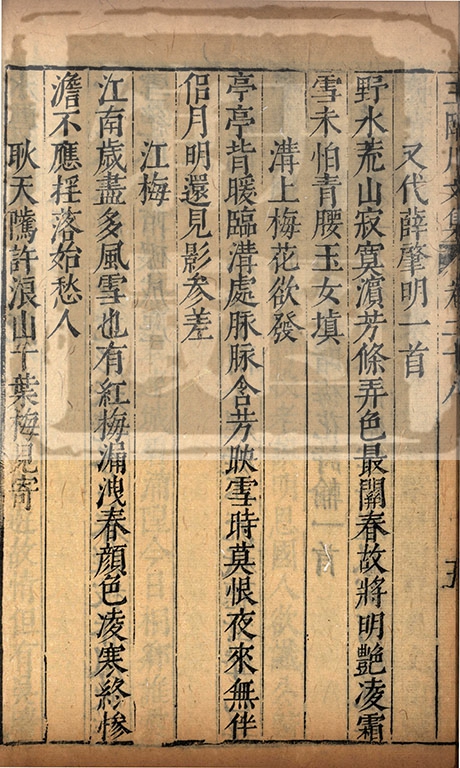 王臨川文集 卷二十八 五
又代薛肇明一首
野水荒山寂寞濵芳條弄色最關春故將明艷凌霜
雪未怕青腰玉女填
溝上梅花欲發
亭亭背暖臨溝處脉脉含芳映雪時莫恨夜來無伴
侶月明還見影參差
江梅
江南歲盡多風雪也有紅梅漏洩春顔色凌寒終慘
澹不應揺落始愁人
耿天隲許浪山千葉梅見寄